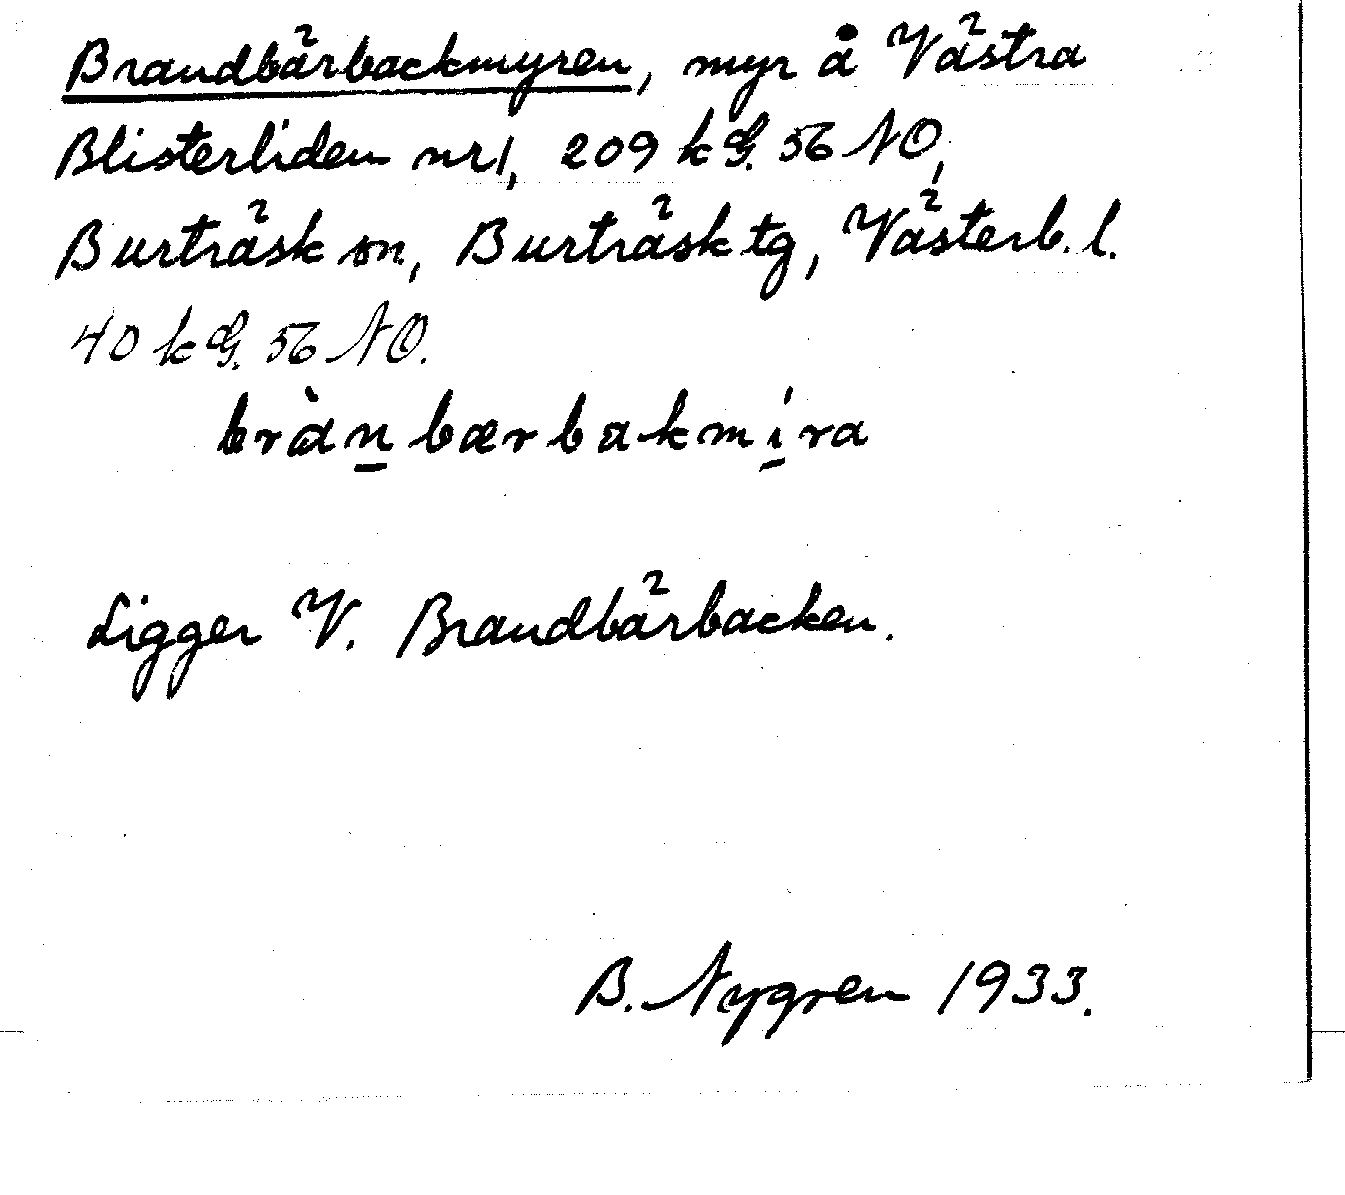 Brandbärbackmyren, myr å Västra
Blisterliden nr 1, 209 k G. 56 NO,
Burträsk sn, Burträsk tg, Västerb. l.
40 k G. 56 NO.
brànbærbakmíra
Ligger V. Brandbärbacken.
B. Nygren 1933.